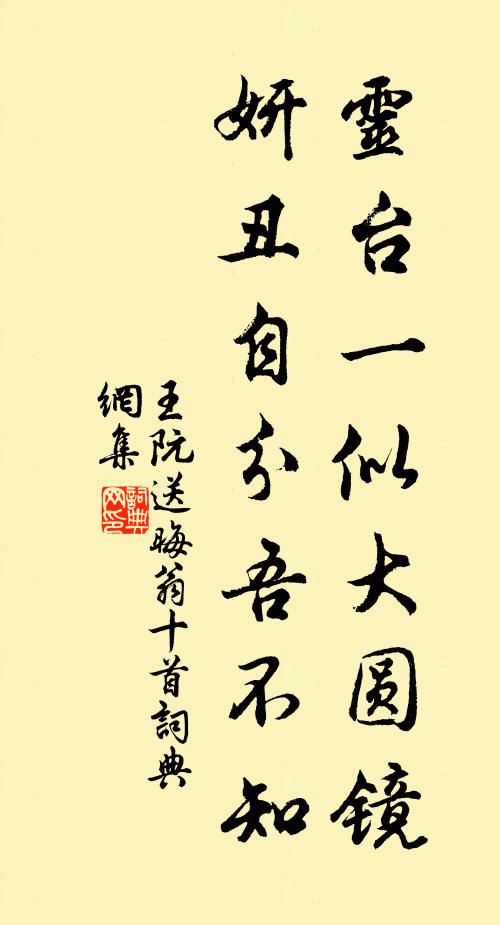 靈台一似大圆镜
妍丑自分吾不知
王阮送晦翁十首詞典
網集
詞典网印